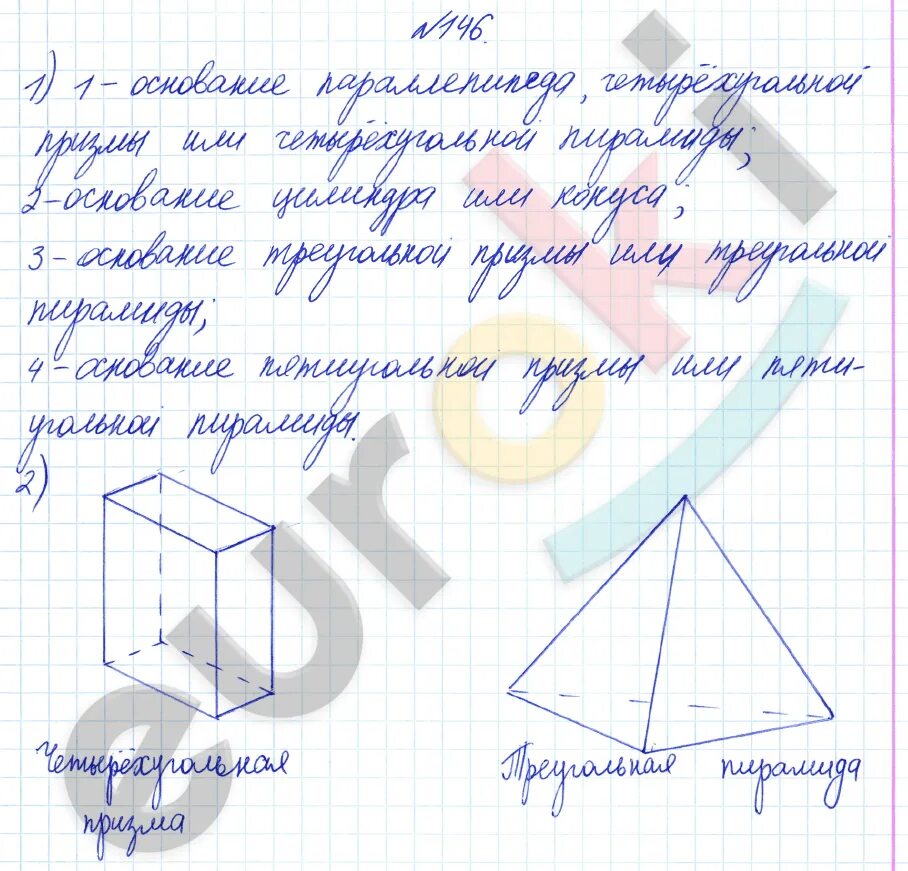 №146.
1) 1 - основание параллепипеда, четырёхугольной
призмы или четырёхугольной пирамиды;
2 - основание цилиндра или конуса;
3 - основание треугольной призмы или треугольной
пирамиды;
4 - основание пятиугольной призмы или пяти-
угольной пирамиды.
2)
Четырёхугольная
призма
Треугольная пирамида
euroki